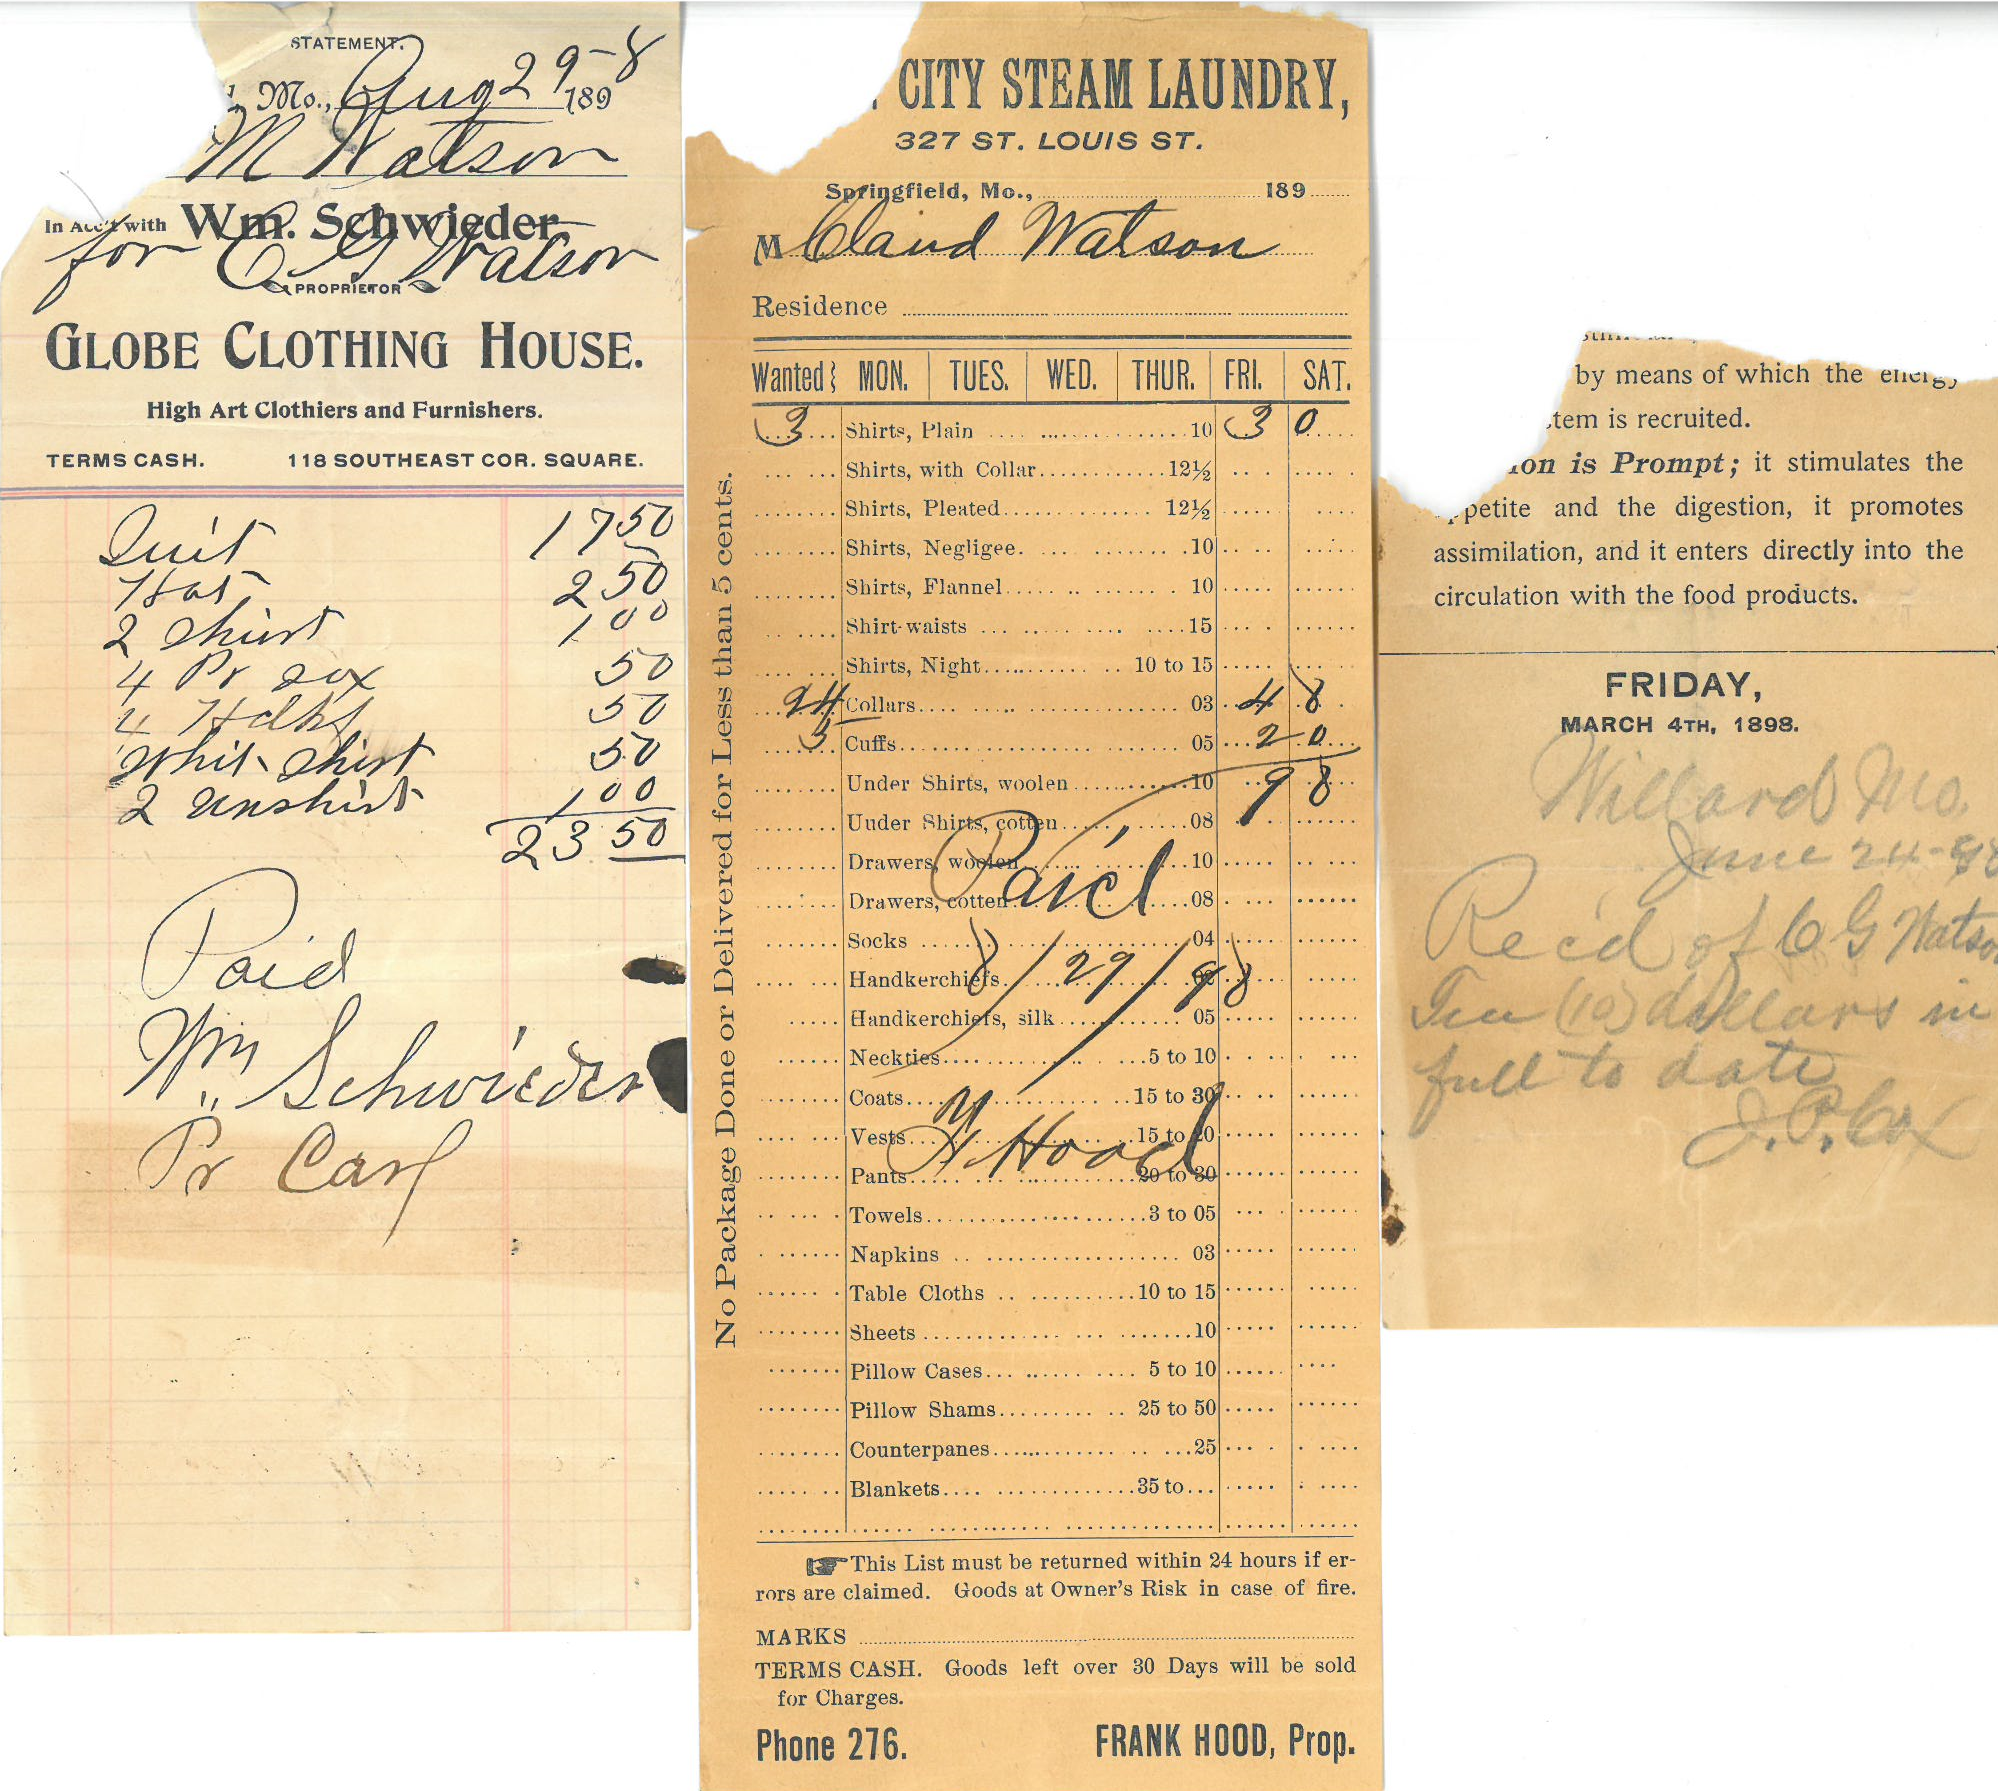 STATEMENT.
Mo., Aug 29-8 1898
M Watson
In Acc't with Wm. Schwieder
for C G Watson
PROPRIETOR
GLOBE CLOTHING HOUSE.
High Art Clothiers and Furnishers.
TERMS CASH. 118 SOUTHEAST COR. SQUARE.
Suit 17 50
Hat 2 50
2 Shirt 1 00
4 Pr Sox 50
4 Hdkf 50
Whit Shirt 50
2 Unshirt 1 00
23 50
Paid
Wm Schwieder
Pr Carl
CITY STEAM LAUNDRY,
327 ST. LOUIS ST.
Springfield, Mo., 189
M Claud Watson
Residence
Wanted MON. TUES. WED. THUR. FRI. SAT.
3 Shirts, Plain 10 30
Shirts, with Collar 12½
Shirts, Pleated 12½
Shirts, Negligee. 10
Shirts, Flannel 10
Shirt-waists 15
Shirts, Night 10 to 15
24 Collars 03 48
5 Cuffs 05 20
Under Shirts, woolen 10 98
Uuder Shirts, cotten 08
Drawers, woolen 10
Drawers, cotten 08
Paid
Socks 04
Handkerchiefs
8/29/98
Handkerchiefs, silk 05
Neckties 5 to 10
Coats 15 to 30
Vests 15 to 20
Hood
Pants 20 to 30
Towels 3 to 05
Napkins 03
Table Cloths 10 to 15
Sheets 10
Pillow Cases 5 to 10
Pillow Shams 25 to 50
Counterpanes 25
Blankets 35 to
No Package Done or Delivered for Less than 5 cents.
This List must be returned within 24 hours if er-
rors are claimed. Goods at Owner's Risk in case of fire.
MARKS
TERMS CASH. Goods left over 30 Days will be sold
for Charges.
Phone 276. FRANK HOOD, Prop.
by means of which the energy
tem is recruited.
ion is Prompt; it stimulates the
ppetite and the digestion, it promotes
assimilation, and it enters directly into the
circulation with the food products.
FRIDAY,
MARCH 4TH, 1898.
Willard Mo.
June 24-98
Rec'd of C G Watson
Ten (10) dollars in
full to date
J. P. Cox